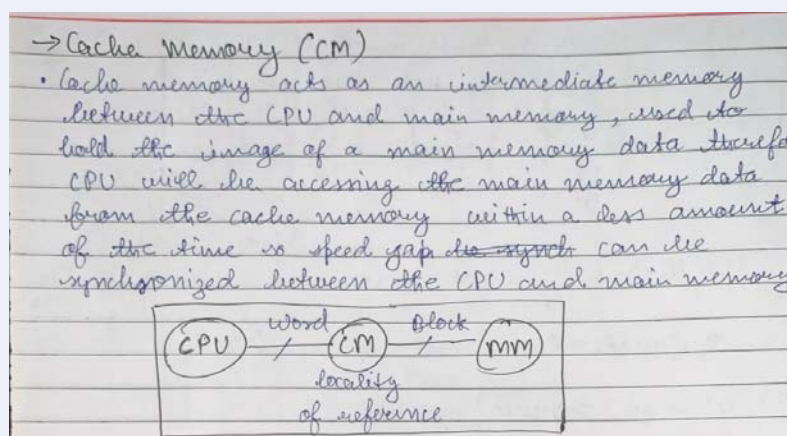 → Cache memory (CM)
• Cache memory acts as an intermediate memory
between the CPU and main memory, used to
hold the image of a main memory data therefo
CPU will be accessing the main memory data
from the cache memory within a less amount
of the time so speed gap to synch can be
synchronized between the CPU and main memory
Word Block
CPU CM MM
locality
of reference